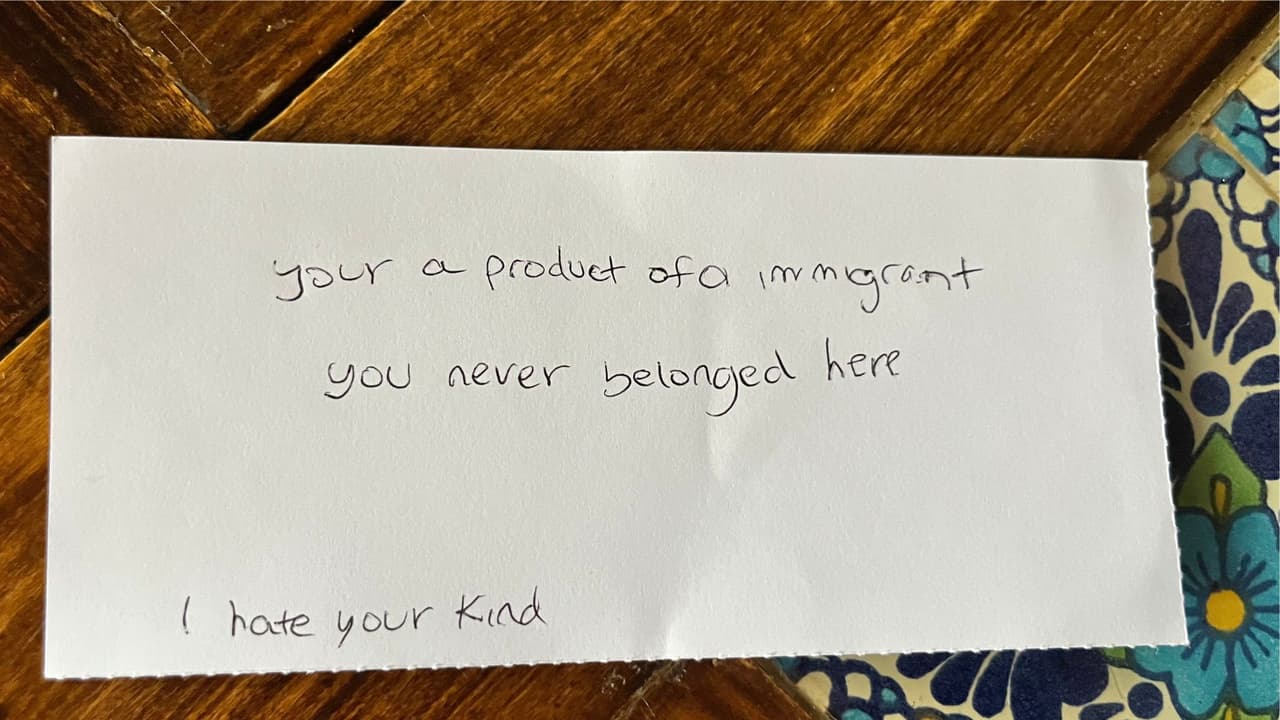 your a product of a immigrant
you never belonged here
I hate your Kind